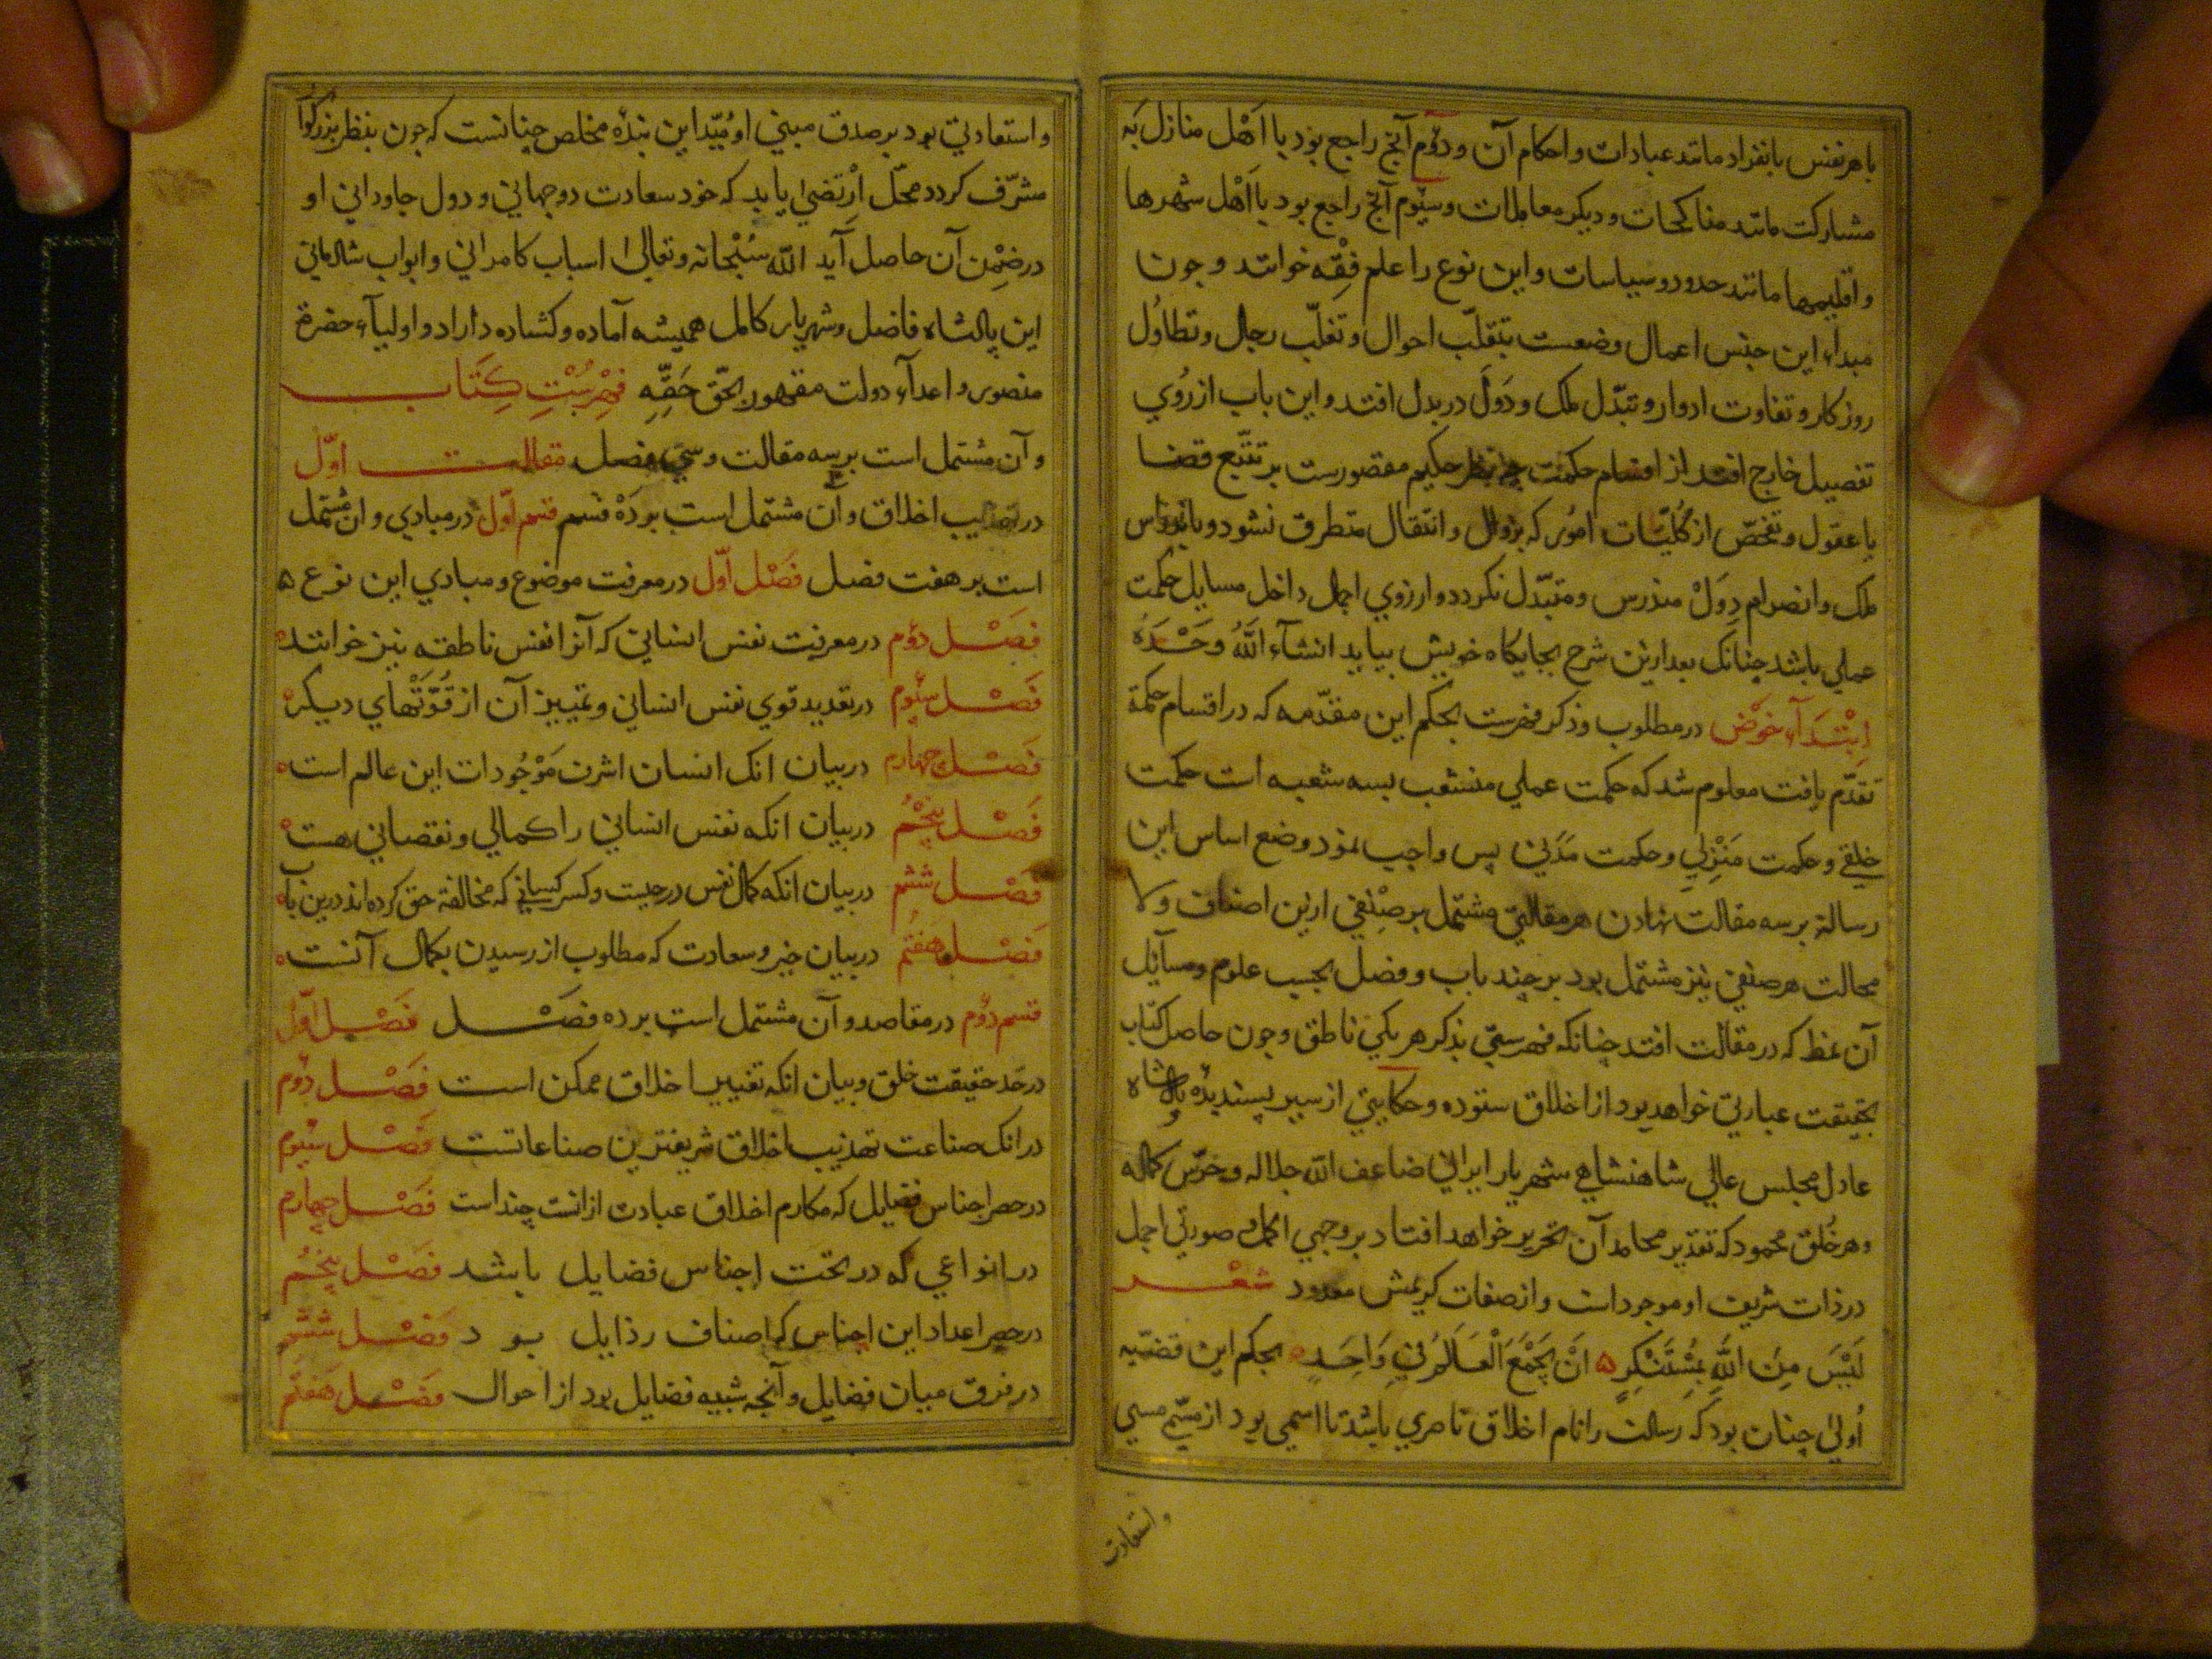 با هر نفس بانفراد مانند عبادات و احکام آن و دوّم آنچ راجع بود با اَهْل منازل به
مشارکت مانند مناکحات و دیکر معاملات و سیّوم آنچ راجع بود با اَهْل شهرها
و اقلیمها مانند حدود و سیاسات و این نوع را علم فِقْه خوانند و جون
مبداء این جنس اعمال وضعست بتقلّب احوال و تغلّب رجال و تطاوُل
روزکار و تفاوت ادوار و تبدّل ملک و دَوَل در بدل افتد و این باب از رُوي
تفصیل خارج افتد از اقسام حکمت چه نظر حکیم مقصورست بر تتبّع قضا
یا عقول و تفحّص از کُلیّات امُور که بزوال و انتقال متطرق نشود و باندراس
ملک و انصرام دِوَلْ مندرس و متبدّل نکردد و از روي اجمال داخل مسایل حکمت
عملي باشد چنانک بعد ازین شرح بجایکاه خویش بیاید انشآء اللّٰهُ وَحْدَهُ
اِبْتِدَآءِ خَوْض در مطلوب و ذکر فهرست بحکم این مقدّمه که در اقسام حکمة
تقدّم یافت معلوم شد که حکمت عملي منشعب بسه شعبه است حکمت
خلقي و حکمت مَنْزِلي و حکمت مَدَنيْ پس واجب نمود وضع اساس این
رسالة بر سه مقالت نهادن هر مقالتي مشتمل بر صِنْفي ازین اصناف و لا
محالت هر صنفي نیز مشتمل بود بر چند باب و فصل بحسب علوم و مسآئل
آن نمط که در مقالت افتد چنانکه فهرستي بذکر هر یکي ناطق و جون حاصل کتاب
بحقیقت عبارتي خواهد بود از اخلاق ستوده و حکایتي از سیر پسندیدهٔ پادشاه
عادل مجلس عالي شاهنشاهي شهریار ایراني ضاعف اللّٰه جلاله و حرّس کماله
و هر خُلق محمود که تقدیر محامد آن تحریر خواهد افتاد بر وجهي اکمل و صورتي اجمل
در ذات شریف او موجود است و از صفات کریمش معدود شعْـــر
لَیْسَ مِنَ اللّٰهِ بِمُسْتَنْکِرٍ ه اَنْ یَجْمَعَ الْعَالَمَ فِي وَاحِدٍ ه بحکم این قضیّه
اُولیٰ چنان بود که رسالت را نام اخلاق ناصري باشد تا اسمي بود از مسمّي مبني
و استعادت
و استعادتي بود بر صدق مبني اومیّد این بندهٔ مخلص چنانست که جون بنظر بزرکوا
مشرّف کردد محلّ اِرْتضيٰ یابد که خود سعادت دو جهاني و دول جاوداني او
در ضِمْنِ آن حاصل آید اللّٰه سُبْحانه و تعالیٰ اسباب کامراني و ابواب شادماني
این پادشاه فاضل و شهریار کامل همیشه آماده و کشاده داراد و اولیآء حضرة
منصور و اعدآء دولت مقهور بحّق حَقِّهِ فِهْرِسْتِ کِتَاب
و آن مشتمل است بر سه مقالت و سي فصل مقالت اوّل
در تهذیب اخلاق و آن مشتمل است بر دو قسم قسم اوّل در مبادي و آن مشتمل
است بر هفت فصل فَصْل اوّل در معرفت موضوع و مبادي این نوع ه
فصْل دوّم در معرفت نفس انساني که آنرا نفس ناطقه نیز خوانند ه
فصْل سیّوم در تعدید قوي نفس انساني و تمییز آن از قُوَّتْهاي دیکر ه
فصْل چهارم در بیان انک انسان اشرف مَوْجُودات این عالم است ه
فَصْل پنجُم در بیان انکه نفس انساني را کمالي و نقصاني هست ه
فَصْل ششم در بیان انکه کمال نفس در چیست و کسر کساني که مخالفة حق کرده اند درین باب ه
فصْل هفتُم در بیان خیر و سعادت که مطلوب از رسیدن بکمال آنست ه
قسم دوّم در مقاصد و آن مشتمل است بر ده فصْل فصْل اوّل
در حَد حقیقت خلق و بیان انکه تغییر اخلاق ممکن است فصْل دوّم
در انک صناعت تهذیب اخلاق شریفترین صناعاتست فصْل سیّوم
در حصر اجناس فضایل که مکارم اخلاق عبادت از انست چند است فصْل چهارم
در انواعي که در تحت اجناس فضایل باشد فصْل پنجُم
در حصر اعداد این اجناس که اصناف رذایل بود فصْل ششُم
در فرق میان فضایل و آنچه شبیه فضایل بود از احوال فصْل هفتم